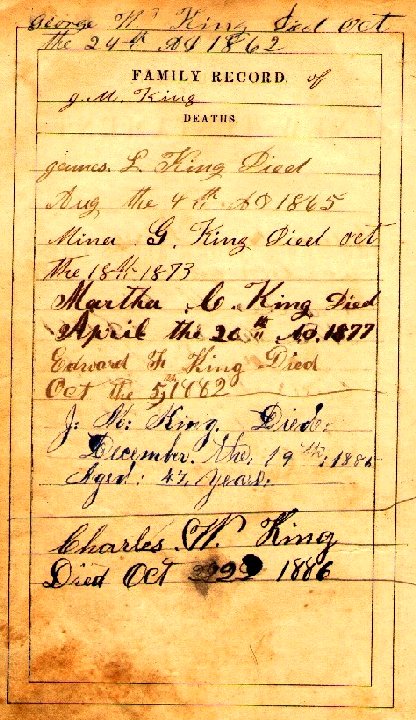 George W King Died Oct
the 24th AD 1862
FAMILY RECORD of
J. M. King
DEATHS
James. L. King Died
Aug the 4th AD 1865
Miner G. King Died oct
the 18th 1873
Martha C. King Died
April the 26th AD. 1877
Edward F King Died
Oct the 5th 1882
J. King. Died.
December. the. 19th, 1886
Aged. 47 years.
Charles. W. King
Died Oct 1886